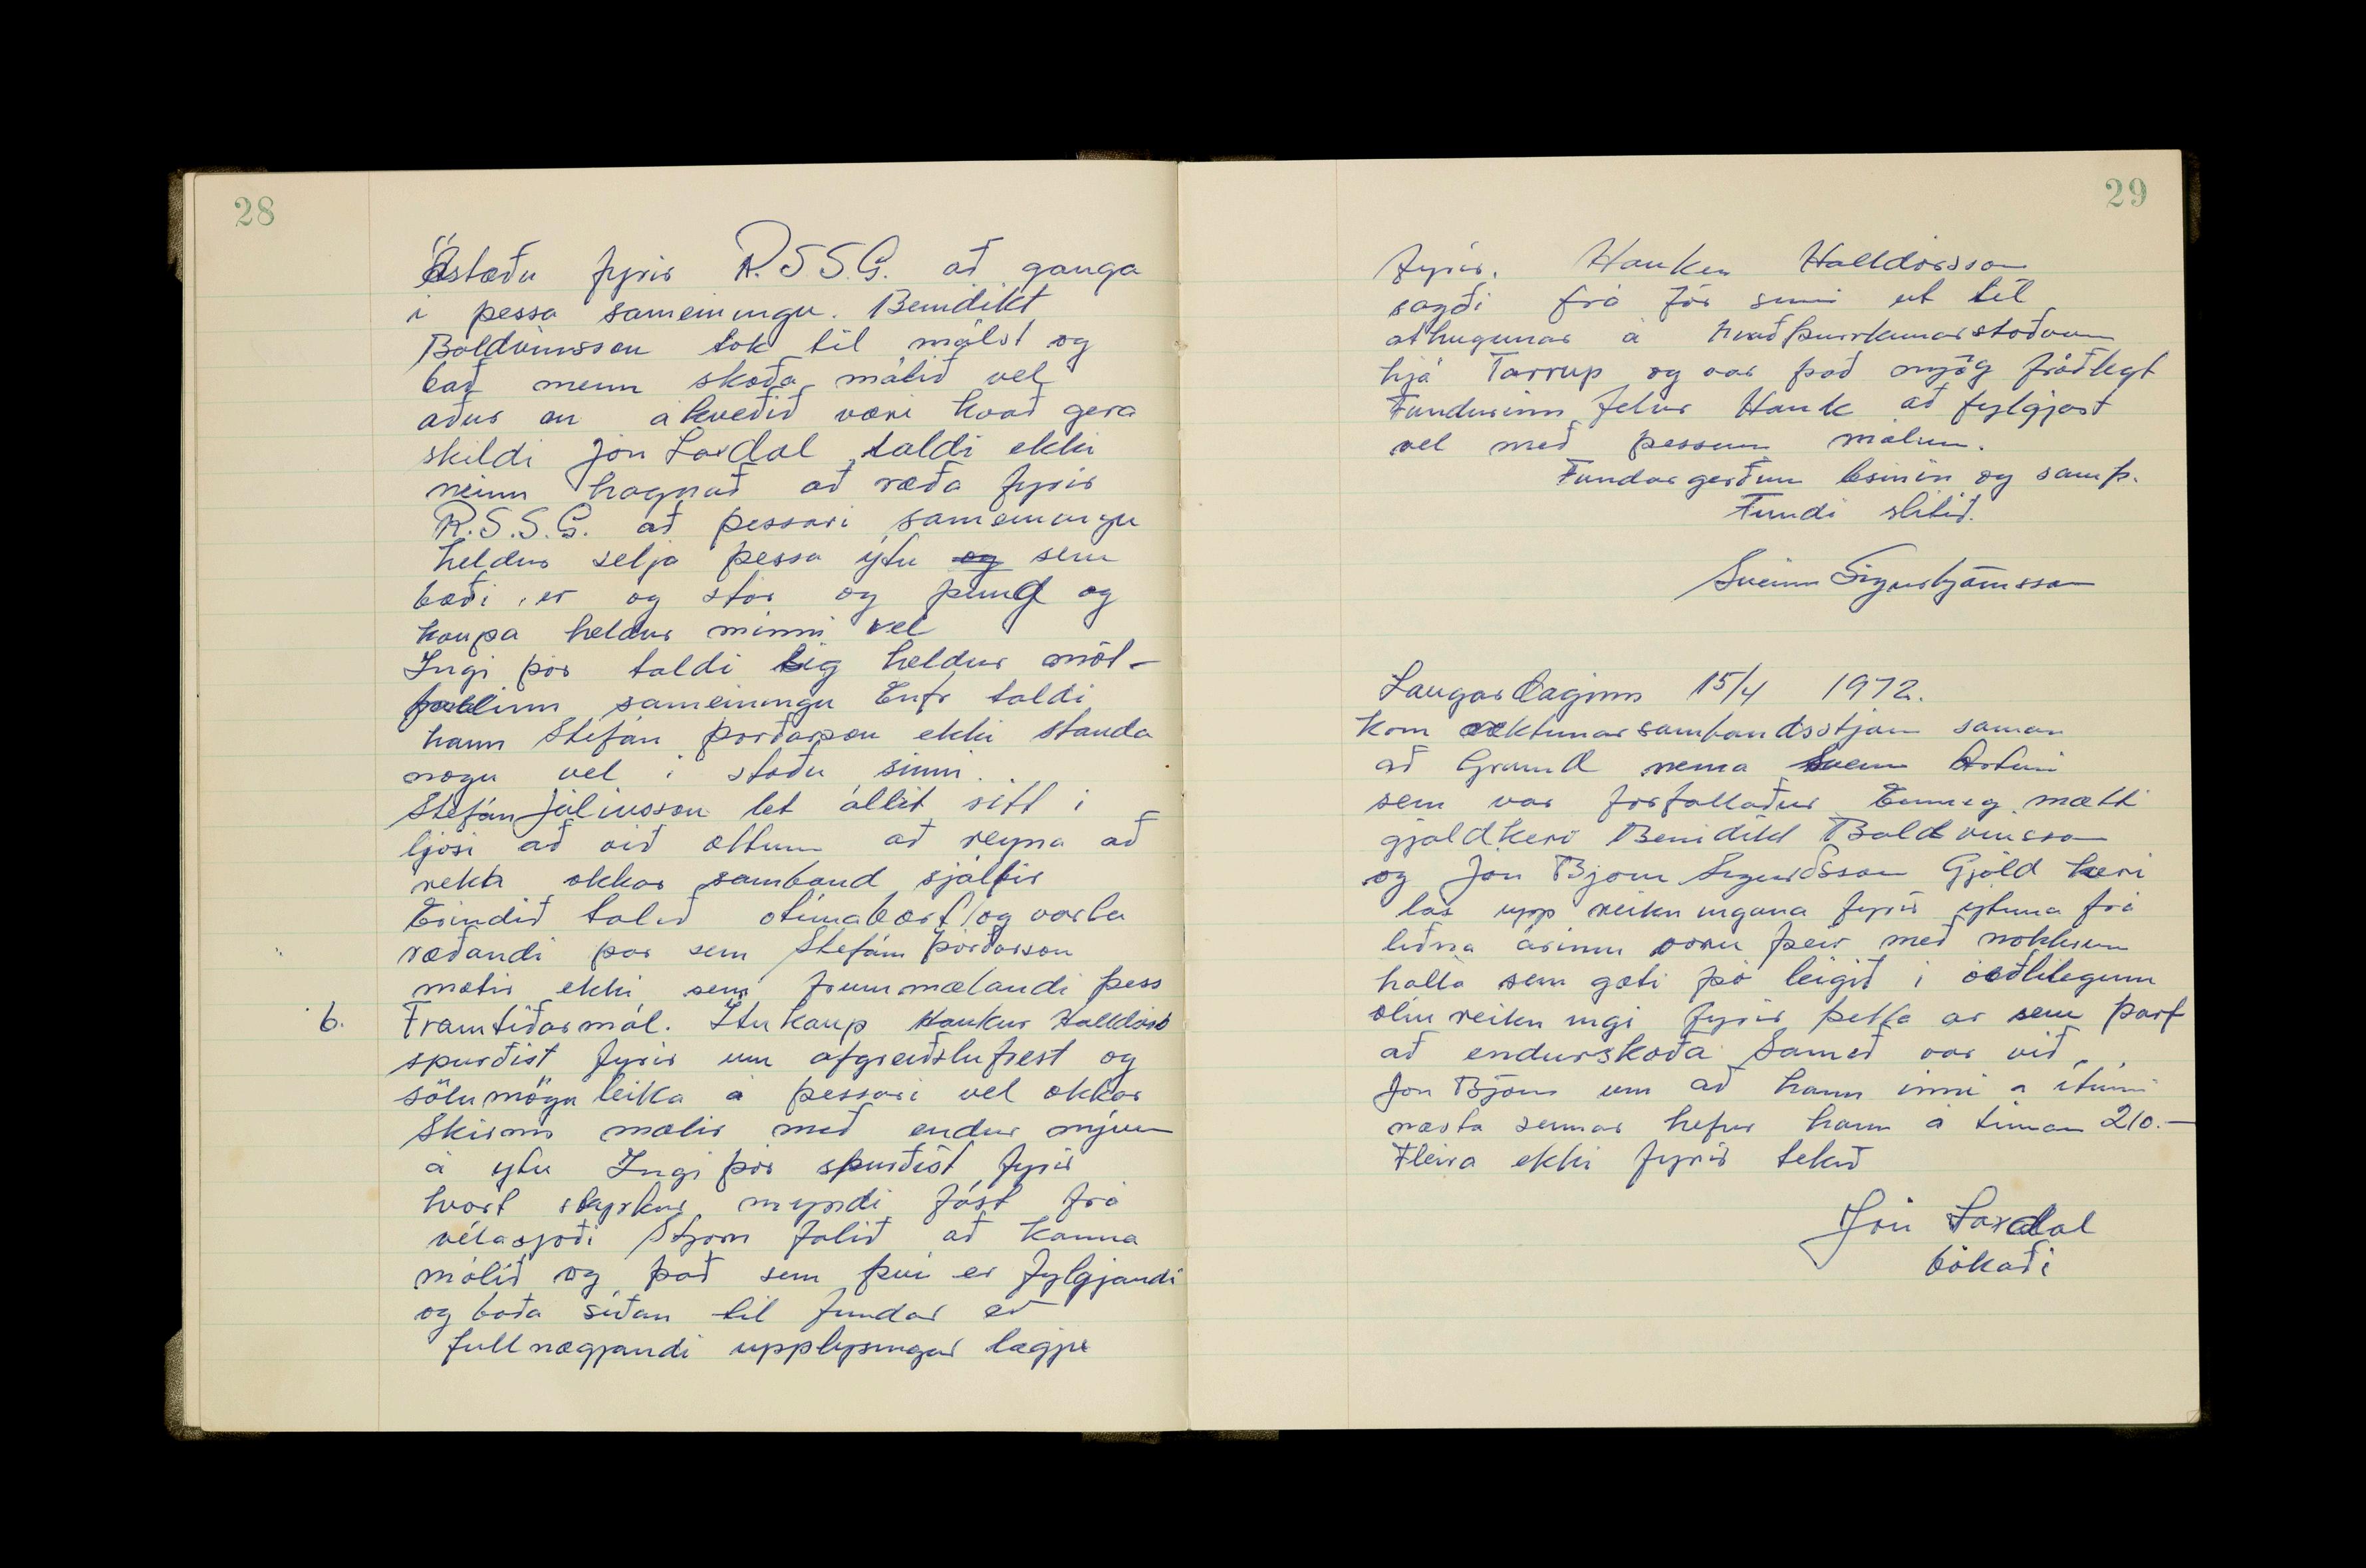 28
ástæðu fyrir R.S.S.G. að ganga
i þessa sameiningu. Benidikt
Baldvinsson tok til máls og
bað menn skoða málið vel
aður en ákveðið væri hvað gera
skildi Jón Laxdal taldi ekki
neinn hagnað að ræða fyrir
R.S.S.G. að þessari sameiningu
heldur selja þessa ýtu og sem
bæði er og stór og þung og
kaupa heldur minni vel
Ingi þór taldi sig heldur mót-
fallinn sameiningu Enfr taldi
hann Stefán þorðarson ekki standa
nogu vel i stoðu sinni.
Stefán Júliusson let állit sitt i
ljósi að við ættum að reyna að
rekа okkar samband sjálfir
Erindið talið ótimabært og varla
ræðandi þar sem Stefán þórðarson
mætir ekki sem frummælandi þess
6. Framtiðarmál. Ítukaup Haukur Halldórs
spurðist fyrir um afgreiðslufrest og
sölumöguleika á þessari vel okkar
Skirnir mælir með endur nýjun
á ytu Ingi þór spurðist fyrir
hvort styrkur myndi fást frá
vélasjoði Stjorn falið að kanna
málið og það sem þvi er fylgjandi
og boða siðan til fundar er
fullnægjandi upplysingar lægju
29
fyrir. Haukur Halldórsson
sagði frá för sinni ut til
athugunar á hraðþurrkunarstoðvum
hjá Tarrup og var það mjög fróðlegt
Fundurinn felur Hauk að fylgjast
vel með þessum málum.
Fundargerðin lesin og samþ.
Fundi slitið.
Sveinn Sigurbjörnsson
Laugardaginn 15/4 1972.
kom ræktunarsambandsstjorn saman
að Grund nema Sveinn
sem var forfallaður Einnig mætti
gjaldkeri Benidikt Baldvinsson
og Jón Bjorn Sigurðsson Gjaldkeri
las upp reikningana fyrir ytuna frá
liðna árinu voru þeir með nokkrum
halla sem gæti þó leigið i óeðlilegum
oliureikningi fyrir þetta ar sem þarf
að endurskoða Samið var við
Jón Björn um að hann inni á ítunni
næsta sumar hefur hann á timan 210.-
Fleira ekki fyrir tekið
Jón Laxdal
bókaði